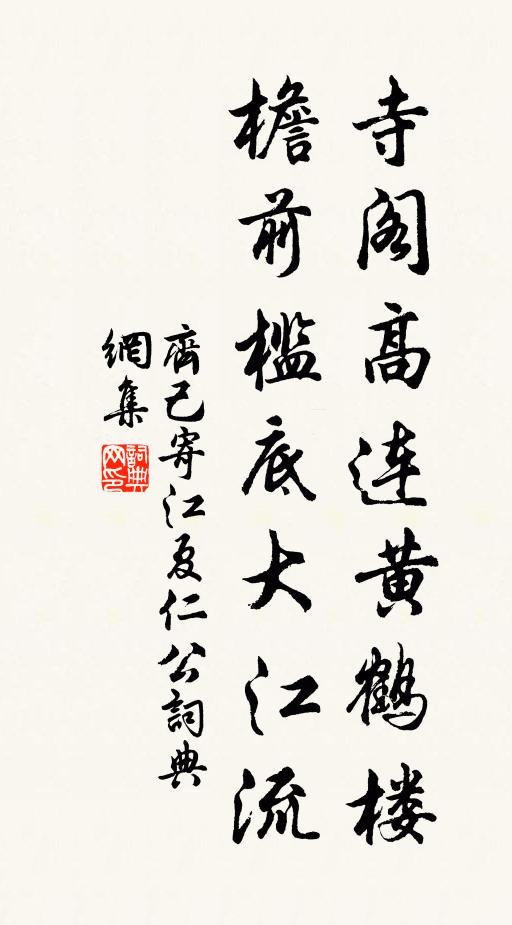 寺阁高连黄鹤楼
檐前槛底大江流
齊己寄江夏仁公詞典
網集
詞典
网印